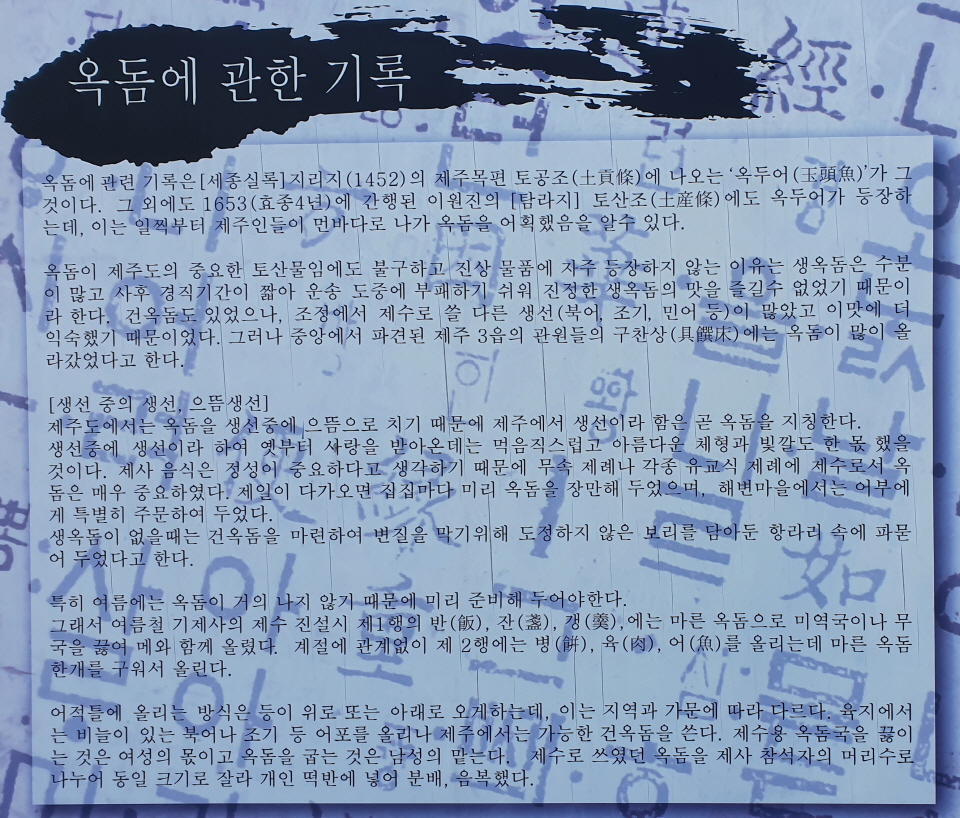 옥돔에 관한 기록
옥돔에 관련 기록은[세종실록]지리지(1452)의 제주목편 토공조(土貢條)에 나오는 ‘옥두어(玉頭魚)’가 그
것이다. 그 외에도 1653(효종4년)에 간행된 이원진의 [탐라지] 토산조(土産條)에도 옥두어가 등장하
는데, 이는 일찍부터 제주인들이 먼바다로 나가 옥돔을 어획했음을 알수 있다.
옥돔이 제주도의 중요한 토산물임에도 불구하고 진상 물품에 자주 등장하지 않는 이유는 생옥돔은 수분
이 많고 사후 경직기간이 짧아 운송 도중에 부패하기 쉬워 진정한 생옥돔의 맛을 즐길수 없었기 때문이
라 한다. 건옥돔도 있었으나, 조정에서 제수로 쓸 다른 생선(북어, 조기, 민어 등)이 많았고 이맛에 더
익숙했기 때문이었다. 그러나 중앙에서 파견된 제주 3읍의 관원들의 구찬상(具饌床)에는 옥돔이 많이 올
라갔었다고 한다.
[생선 중의 생선, 으뜸생선]
제주도에서는 옥돔을 생선중에 으뜸으로 치기 때문에 제주에서 생선이라 함은 곧 옥돔을 지칭한다.
생선중에 생선이라 하여 옛부터 사랑을 받아온데는 먹음직스럽고 아름다운 체형과 빛깔도 한 몫 했을
것이다. 제사 음식은 정성이 중요하다고 생각하기 때문에 무속 제례나 각종 유교식 제례에 제수로서 옥
돔은 매우 중요하였다. 제일이 다가오면 집집마다 미리 옥돔을 장만해 두었으며, 해변마을에서는 어부에
게 특별히 주문하여 두었다.
생옥돔이 없을때는 건옥돔을 마련하여 변질을 막기위해 도정하지 않은 보리를 담아둔 항라리 속에 파묻
어 두었다고 한다.
특히 여름에는 옥돔이 거의 나지 않기 때문에 미리 준비해 두어야한다.
그래서 여름철 기제사의 제수 진설시 제1행의 반(飯), 잔(盞), 갱(羹), 에는 마른 옥돔으로 미역국이나 무
국을 끓여 메와 함께 올렸다. 계절에 관계없이 제 2행에는 병(餠), 육(肉), 어(魚)를 올리는데 마른 옥돔
한개를 구워서 올린다.
어적틀에 올리는 방식은 등이 위로 또는 아래로 오게하는데, 이는 지역과 가문에 따라 다르다. 육지에서
는 비늘이 있는 북어나 조기 등 어포를 올리나 제주에서는 가능한 건옥돔을 쓴다. 제수용 옥돔국을 끓이
는 것은 여성의 몫이고 옥돔을 굽는 것은 남성의 맡는다. 제수로 쓰였던 옥돔을 제사 참석자의 머리수로
나누어 동일 크기로 잘라 개인 떡반에 넣어 분배, 음복했다.